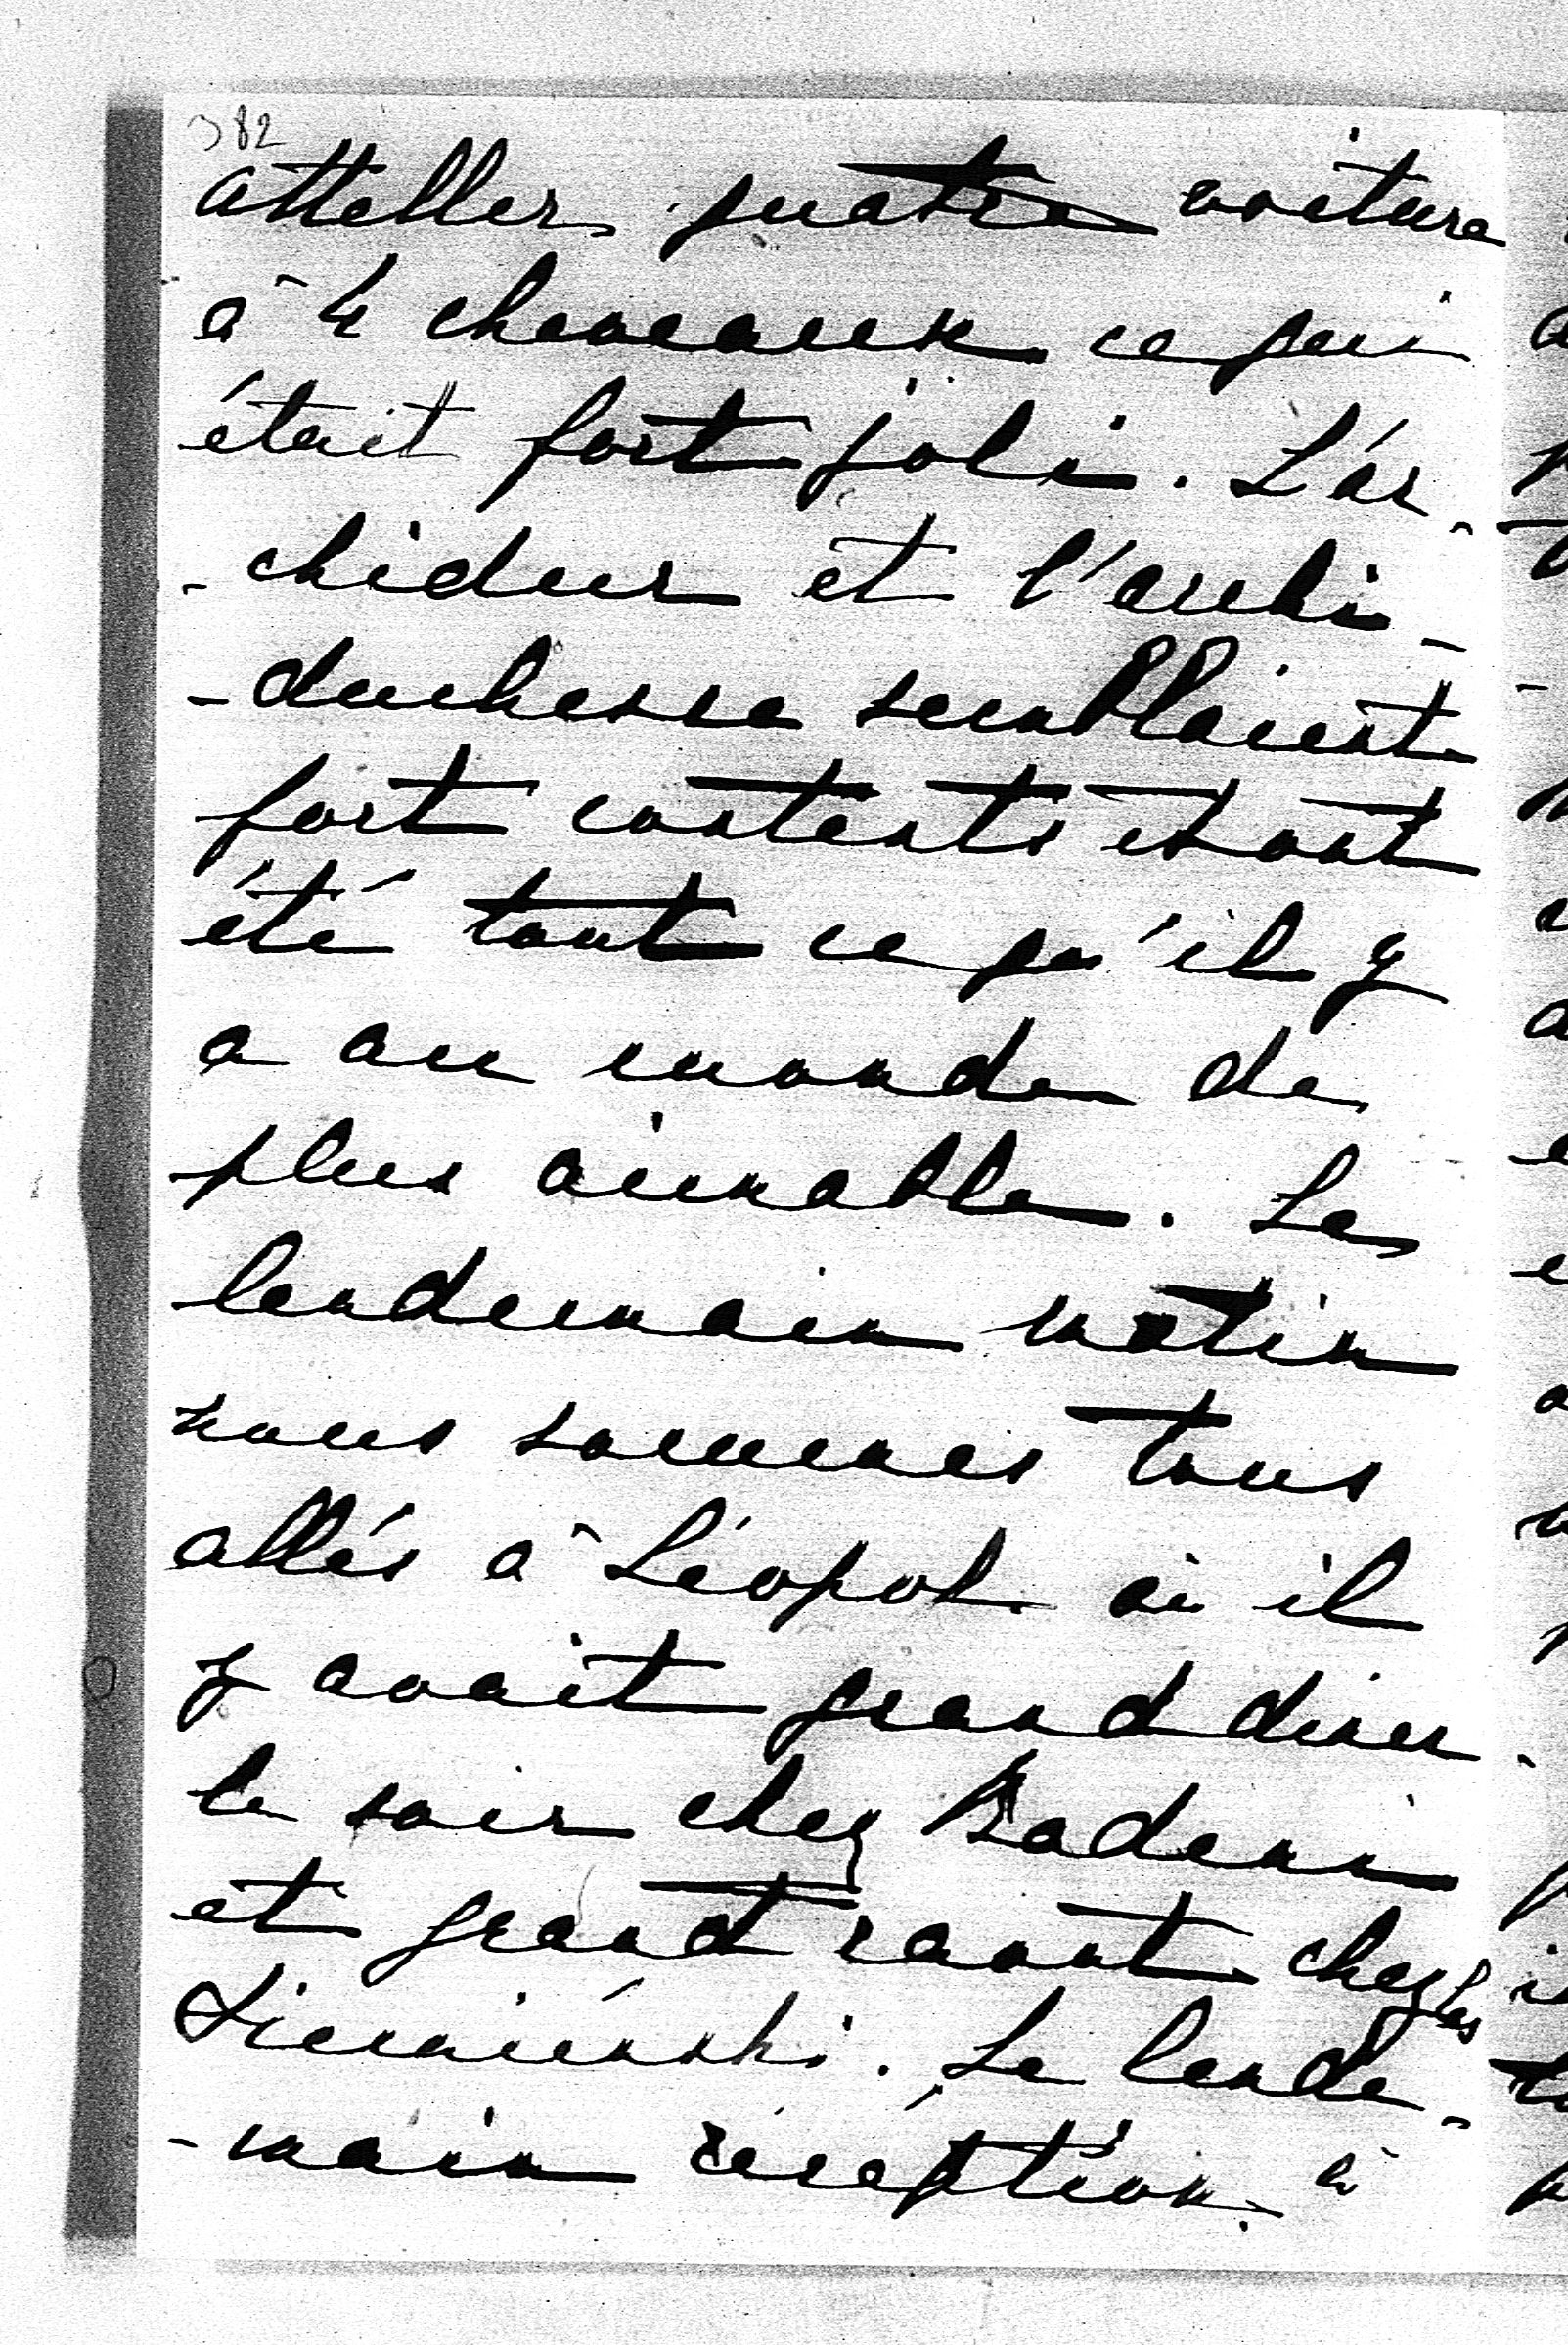 382
atteller quatre voiture
à 4 cheveaux ce qui
était fort joli. L'ar-
-chiduc et l'archi-
-duchesse semblaient
fort contents et ont
été tout ce qu'il y
a au monde de
plus aimable. Le
lendemain matin
nous sommes tous
allés à Léopol où il
y avait grand diner
le soir chez Badeni
et grand raout chez les
Siemieński. Le lende-
-main réception à